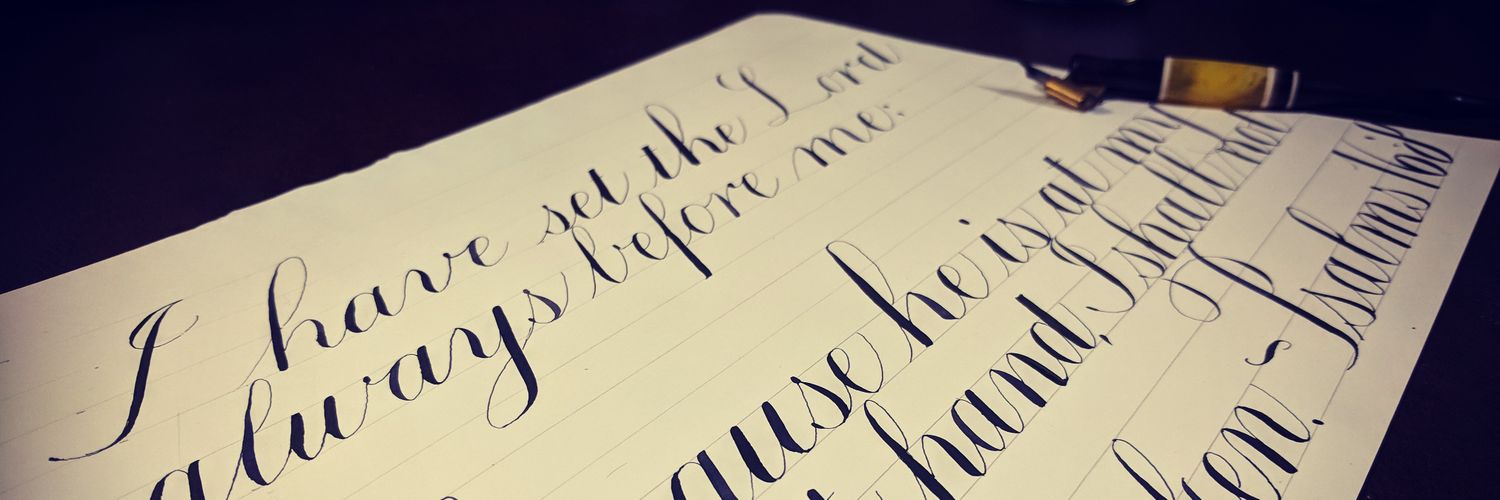 I have set the Lord
always before me:
ause he is at my
t hand, I shall not
ken. ~ Psalms 16: